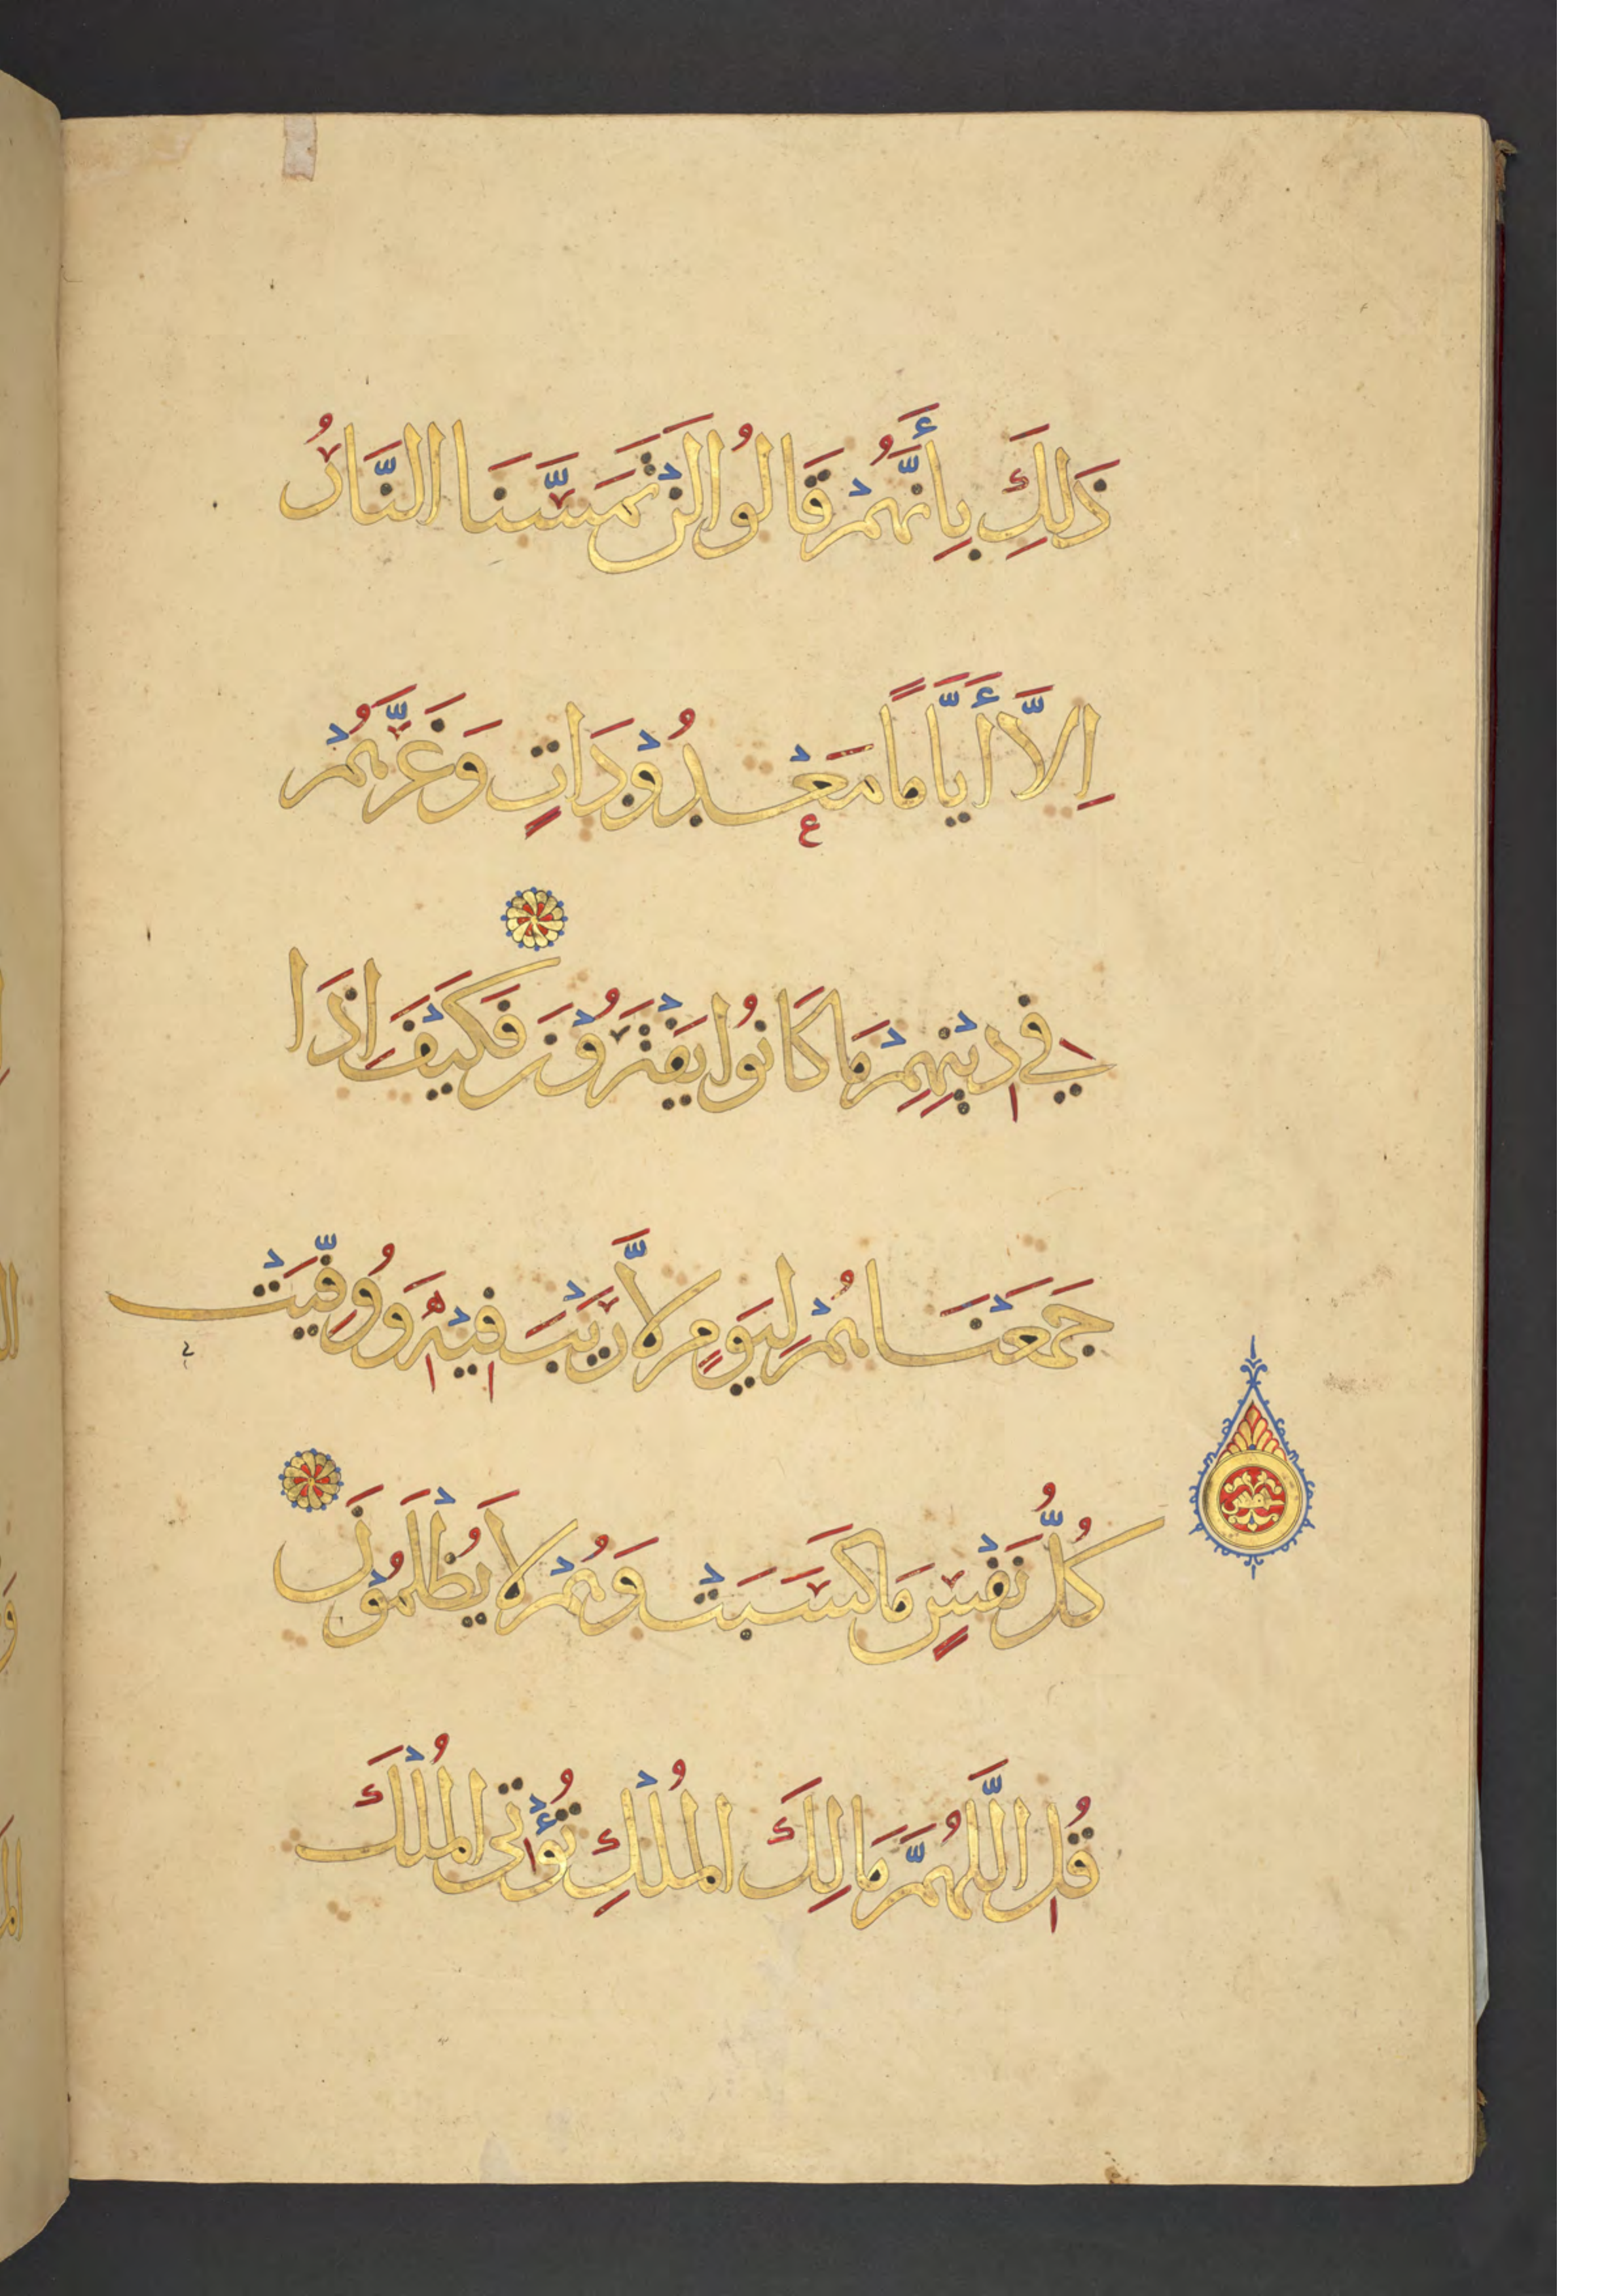 ذَلِكَ بِأَنَّهُمْ قَالُوا لَنْ تَمَسَّنَا النَّارُ
اِلَّا أَيَّامًا مَعْدُوْدَاتٍ وَغَرَّهُمْ
فِي دِيْنِهِمْ مَا كَانُوا يَفْتَرُوْنَ فَكَيْفَ اِذَا
جَمَعْنَاهُمْ لِيَوْمٍ لَّا رَيْبَ فِيْهِ وَوُفِّيَتْ
كُلُّ نَفْسٍ مَا كَسَبَتْ وَهُمْ لَا يُظْلَمُوْنَ
قُلِ اللَّهُمَّ مَالِكَ الْمُلْكِ تُؤْتِي الْمُلْكَ